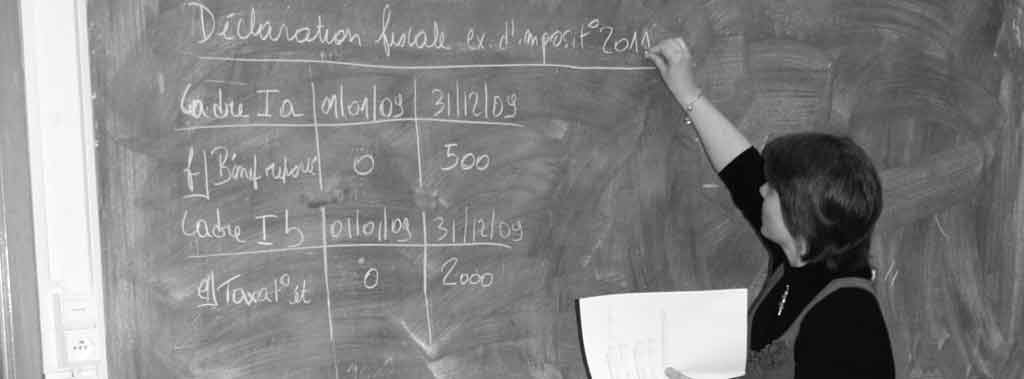 Déclaration fiscale ex. d'imposit° 2011
Cadre I a 01/01/09 31/12/09
f) Bénéf 0 500
Cadre I b 01/01/09 31/12/09
e) Taxat° ét 0 2000